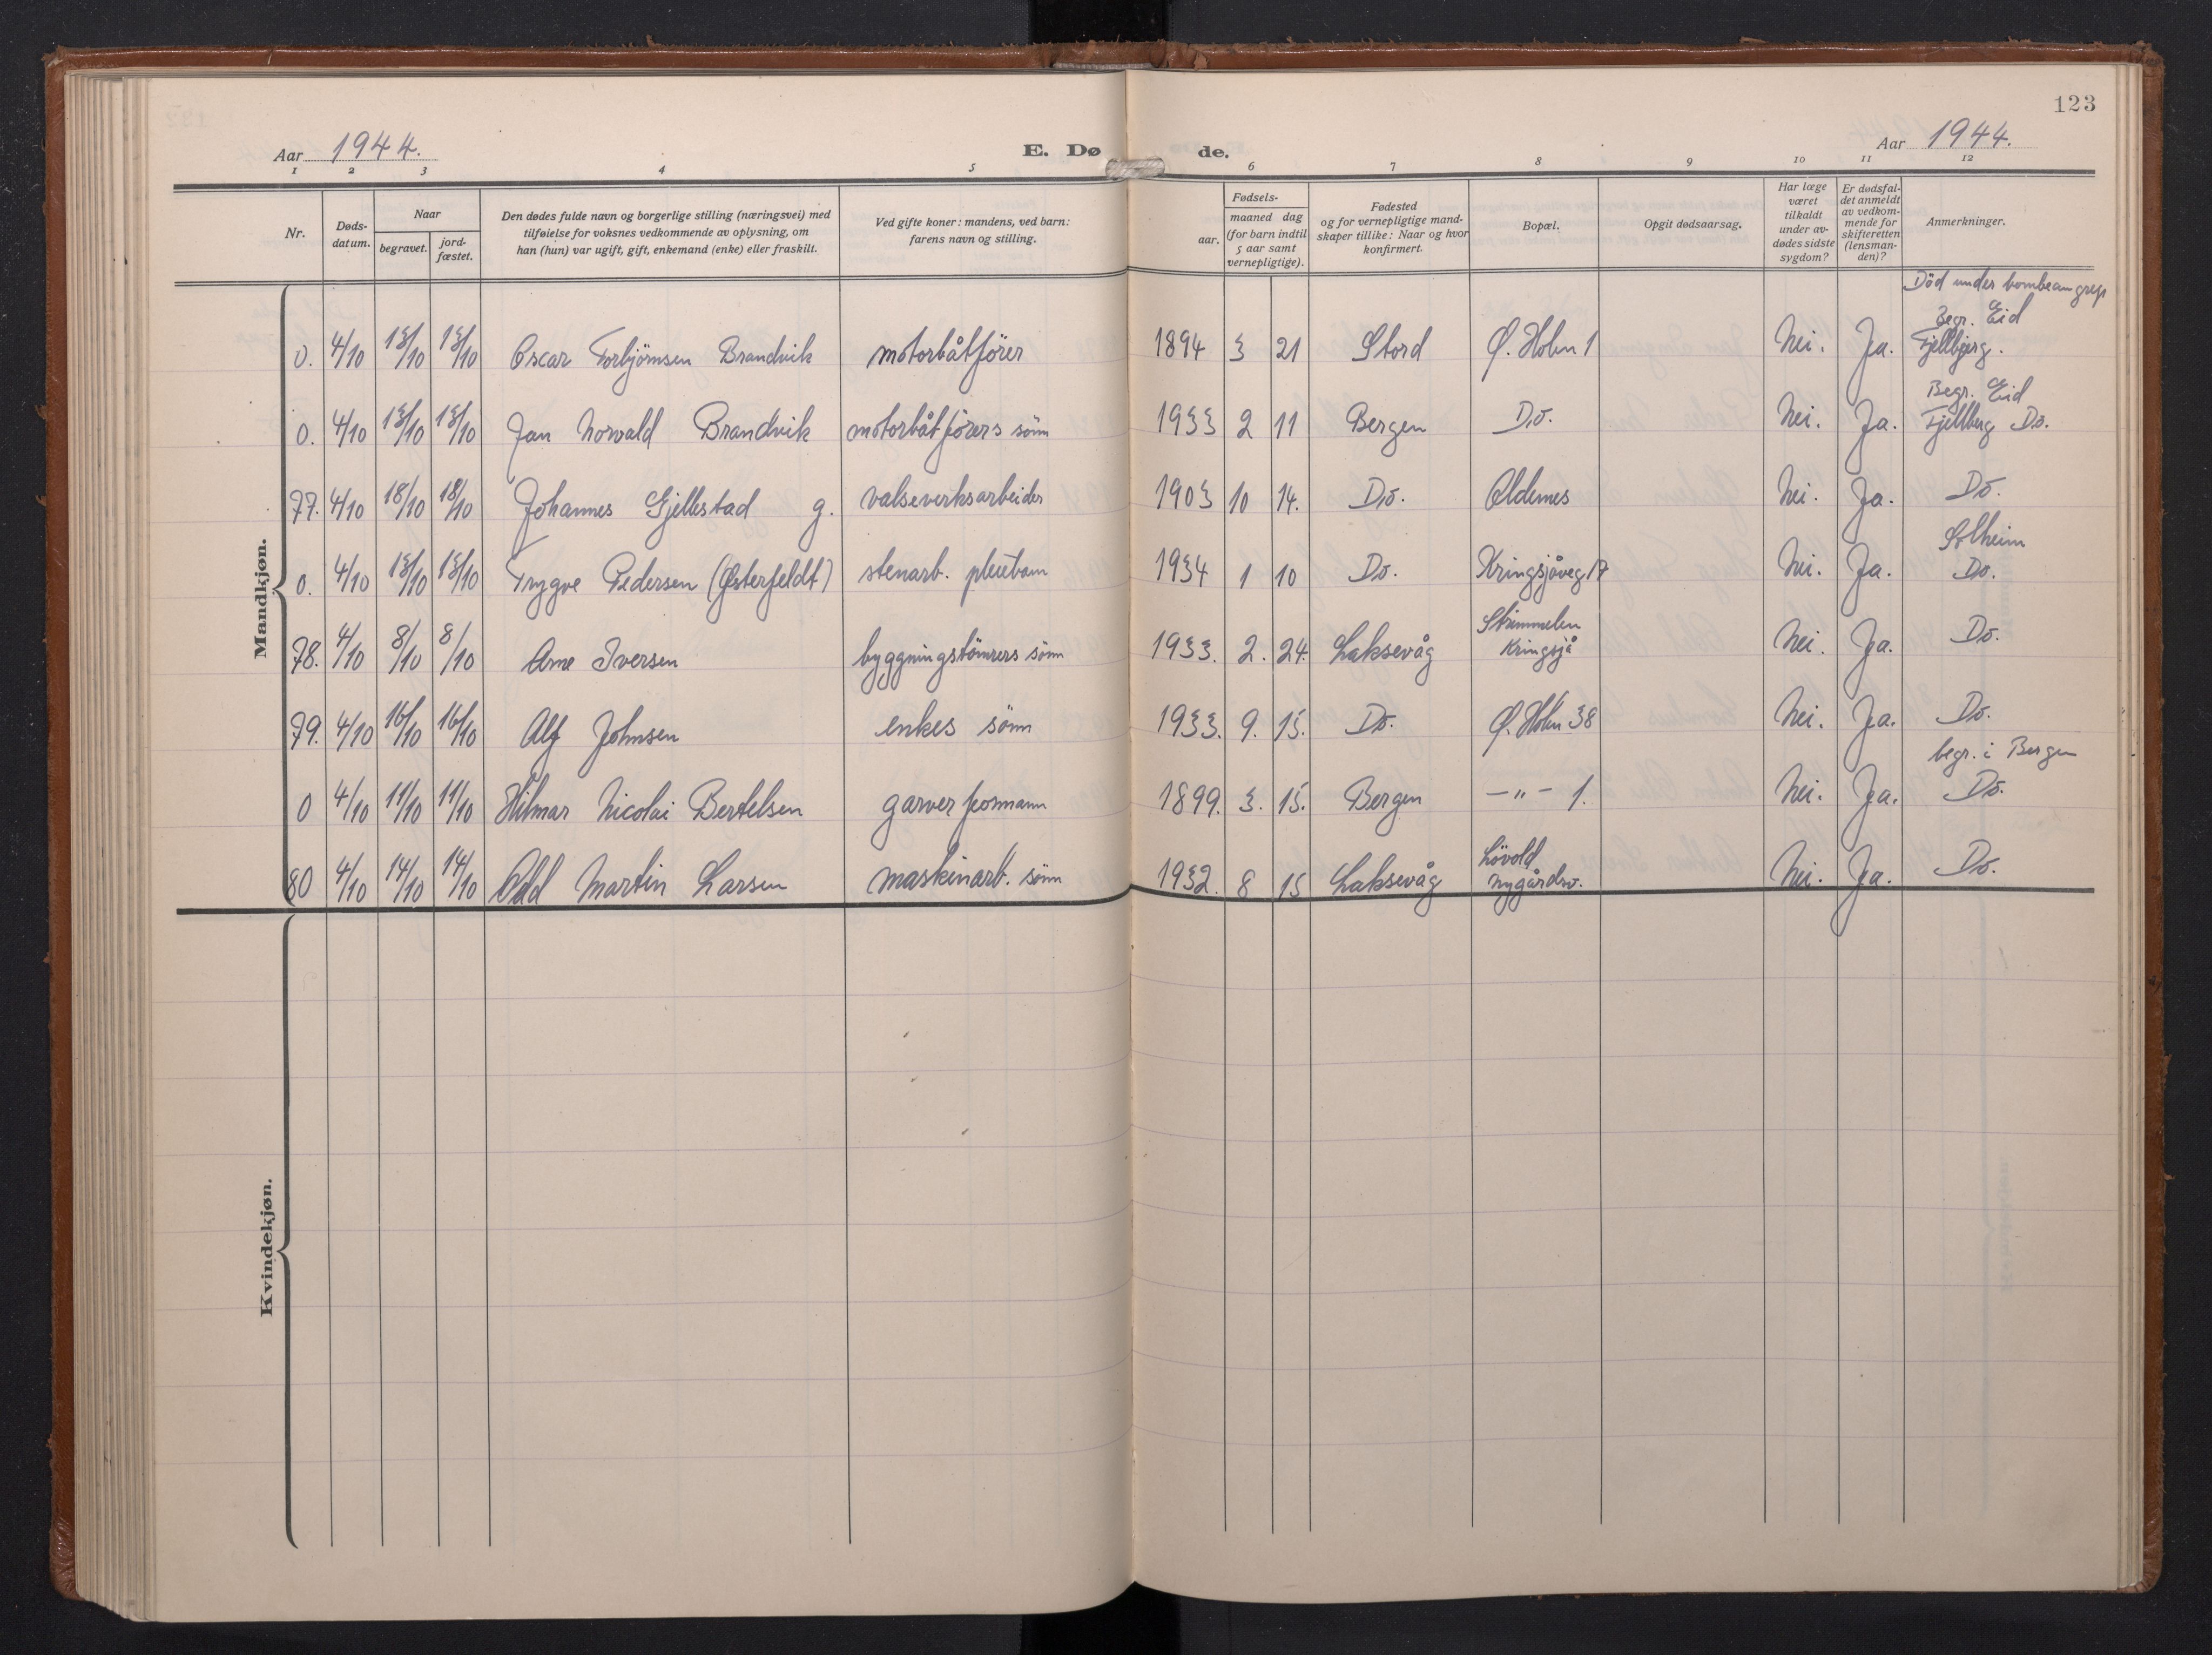 123
Aar 1944. E. Dø de. Aar 1944.
1 2 3 4 5 6 7 8 9 10 11 12
Nr.
Døds-
datum.
Naar
begravet.
jord-
fæstet.
Den dødes fulde navn og borgerlige stilling (næringsvei) med
tilføielse for voksnes vedkommende av oplysning, om
han (hun) var ugift, gift, enkemand (enke) eller fraskilt.
Ved gifte koner: mandens, ved barn:
farens navn og stilling.
Fødsels-
aar.
maaned dag
(for barn indtil
5 aar samt
vernepligtige).
Fødested
og for vernepligtige mand-
skaper tillike: Naar og hvor
konfirmert.
Bopæl.
Opgit dødsaarsag.
Har læge
været
tilkaldt
under av-
dødes sidste
sygdom?
Er dødsfal-
det anmeldt
av vedkom-
mende for
skifteretten
(lensman-
den)?
Anmerkninger.
Mandkjøn.
Död under bombeangrep
Begr. Eid
0. 4/10 13/10 13/10 Oscar Torbjörnsen Brandvik motorbåtförer 1894 3 21 Stord Ø. Holm 1 Nei. Ja. Fjellbjerg.
Begr. Eid
0. 4/10 13/10 13/10 Jan Norvald Brandvik motorbåtförers sönn 1933 2 11 Bergen Do. Nei. Ja. Fjellberg Do.
77. 4/10 18/10 18/10 Johannes Gjellestad g. valseverksarbeider 1903 10 14. Do. Oldernes Nei. Ja. Do.
Solheim
0. 4/10 13/10 13/10 Trygve Pedersen (Østerfeldt) stenarb. pleiebarn 1934 1 10 Do. Kringsjåveg 17 Nei. Ja. Do.
Strimmelen
78. 4/10 8/10 8/10 Arne Iversen byggningstömrers sönn 1933. 2. 24. Laksevåg Kringsjå Nei. Ja. Do.
79. 4/10 16/10 16/10 Alf Johnsen enkes sönn 1933. 9. 15. Do. Ø. Holm 38 Nei. Ja. Do.
begr. i Bergen
0 4/10 11/10 11/10 Hilmar Nicolai Bertelsen garverformann 1899. 3. 15. Bergen -"- 1. Nei. Ja. Do.
Lövold
80 4/10 14/10 14/10 Odd Martin Larsen maskinarb. sönn 1932. 8 15 Laksevåg Nygårdsv. Nei. Ja. Do.
Kvindekjøn.